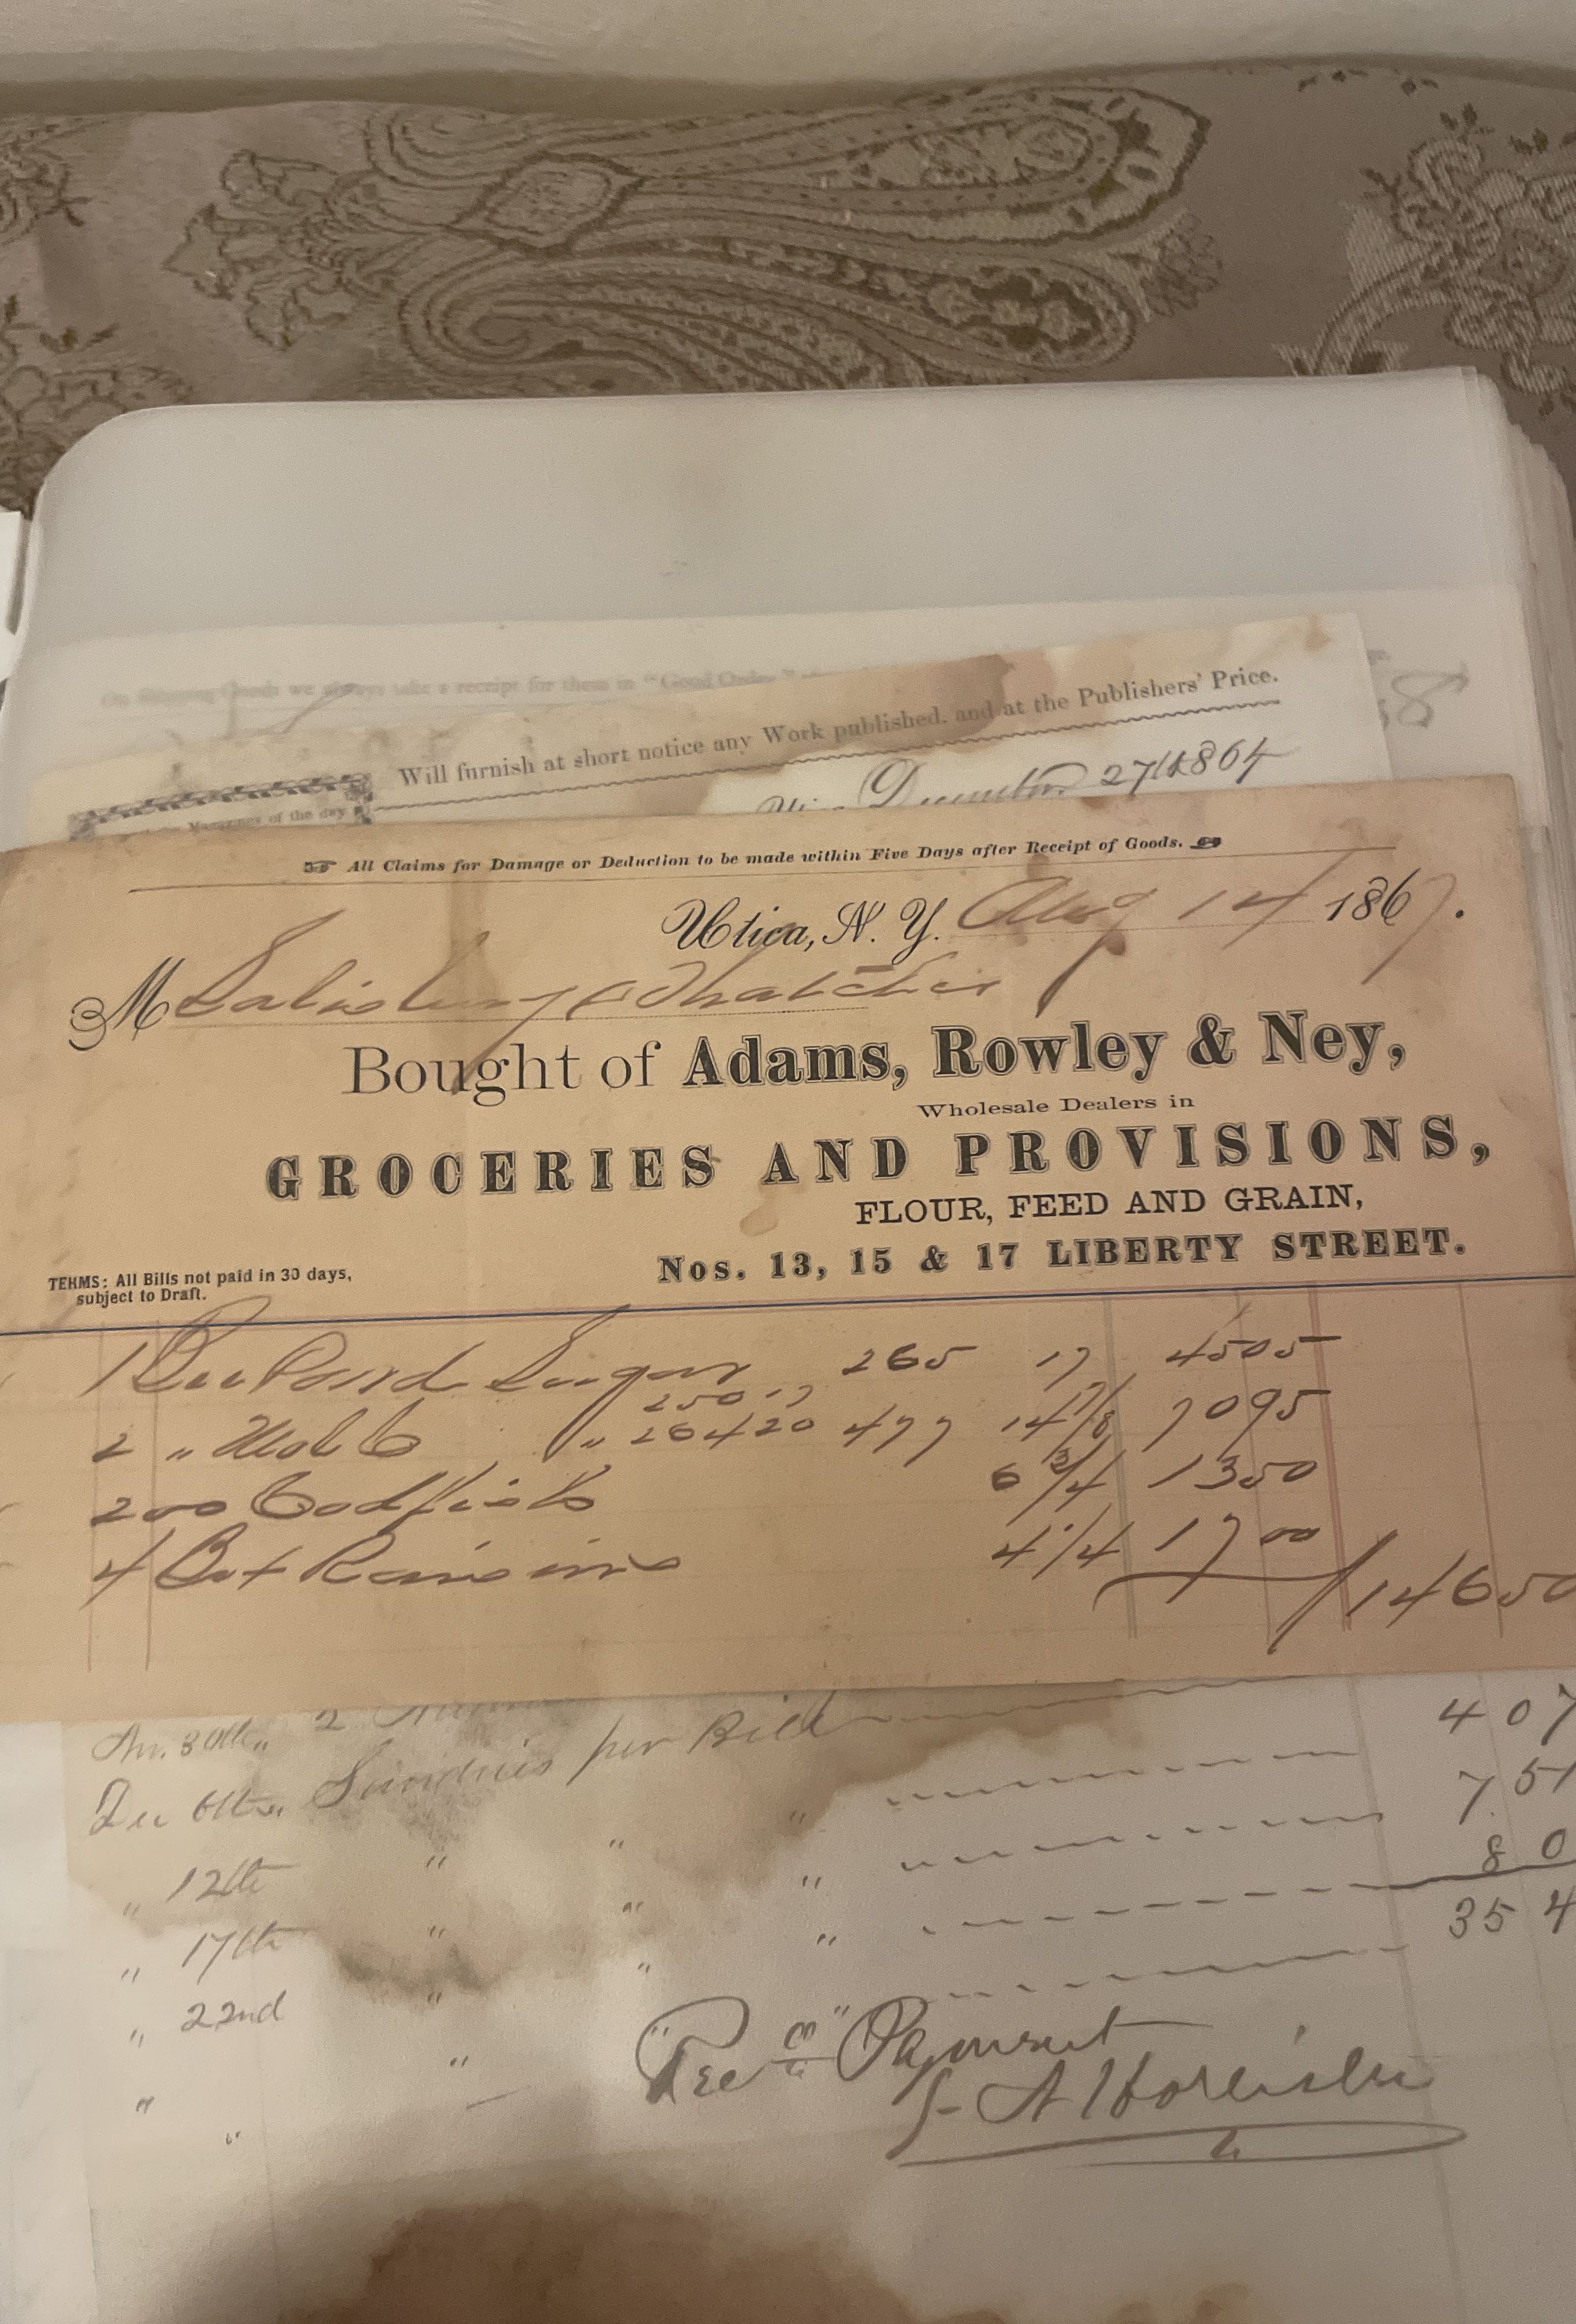 On Shipping Goods we always take a receipt for them in "Good Order"
8
Will furnish at short notice any Work published, and at the Publishers' Price.
of the day
December 27th 1864
All Claims for Damage or Deduction to be made within Five Days after Receipt of Goods.
Utica, N. Y. Aug 14 1867.
M Salisbury & Thatcher
Bought of Adams, Rowley & Ney,
Wholesale Dealers in
GROCERIES AND PROVISIONS,
FLOUR, FEED AND GRAIN,
Nos. 13, 15 & 17 LIBERTY STREET.
TERMS: All Bills not paid in 30 days,
subject to Draft.
1 Sugar 265 17 4505
250 17
2 " " 264 20 477 14 7/8 7095
200 Codfish 6 3/4 1350
4 Box Raisins 4 1/4 1700
14650
30th " 2
407
Dec 6th " Sundries per Bill
751
" 12th " " "
80
" 17th " " "
354
" 22nd " " "
" " "
Rec'd Payment